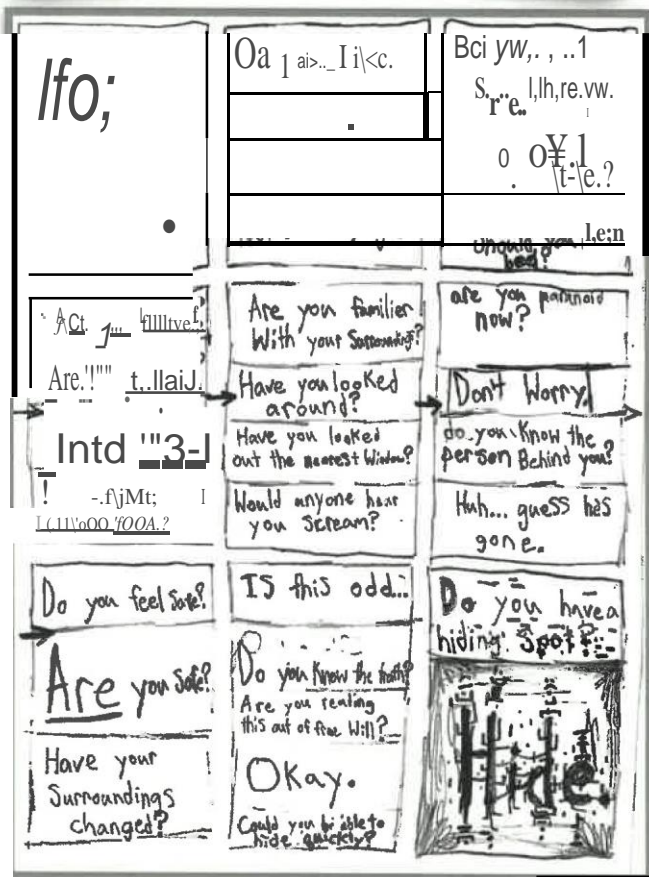 lfo;
Oa 1 ai>.._ I i\<c.
Bci yw,. , ..1
I,lh,re.vw.
0 o¥.l
\t-\e.?
l,e;n
should you
bed?
Are you familier
With your Surroundings?
Have you looked
around?
Have you looked
out the nearest Window?
Would anyone hear
you Scream?
are you paranoid
now?
Don't Worry!
do you Know the
person Behind you?
Huh... guess he's
gone.
Are.'!"" t,.llaiJ.
Intd '"3-l
! -.f\jMt; I
Do you feel Safe?
Are you Safe?
Have your
Surroundings
changed?
IS this odd...
Do you Know the truth?
Are you reading
this out of free Will?
Okay.
Could you be able to
hide quickly?
Do you have a
hiding Spot?
Hide.